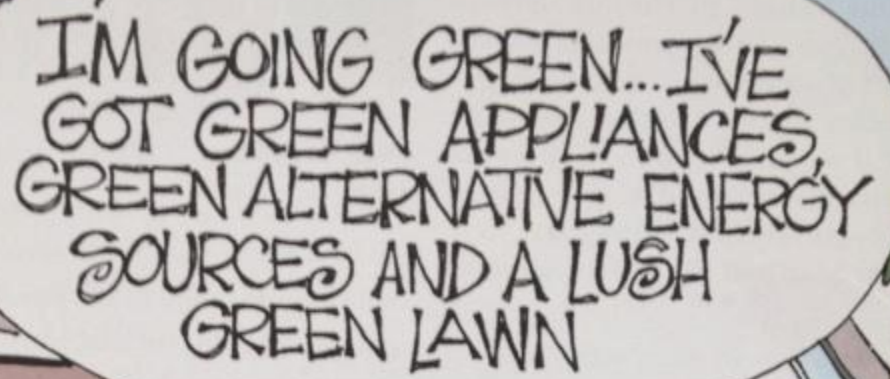 I'M GOING GREEN...I'VE
GOT GREEN APPLIANCES,
GREEN ALTERNATIVE ENERGY
SOURCES AND A LUSH
GREEN LAWN